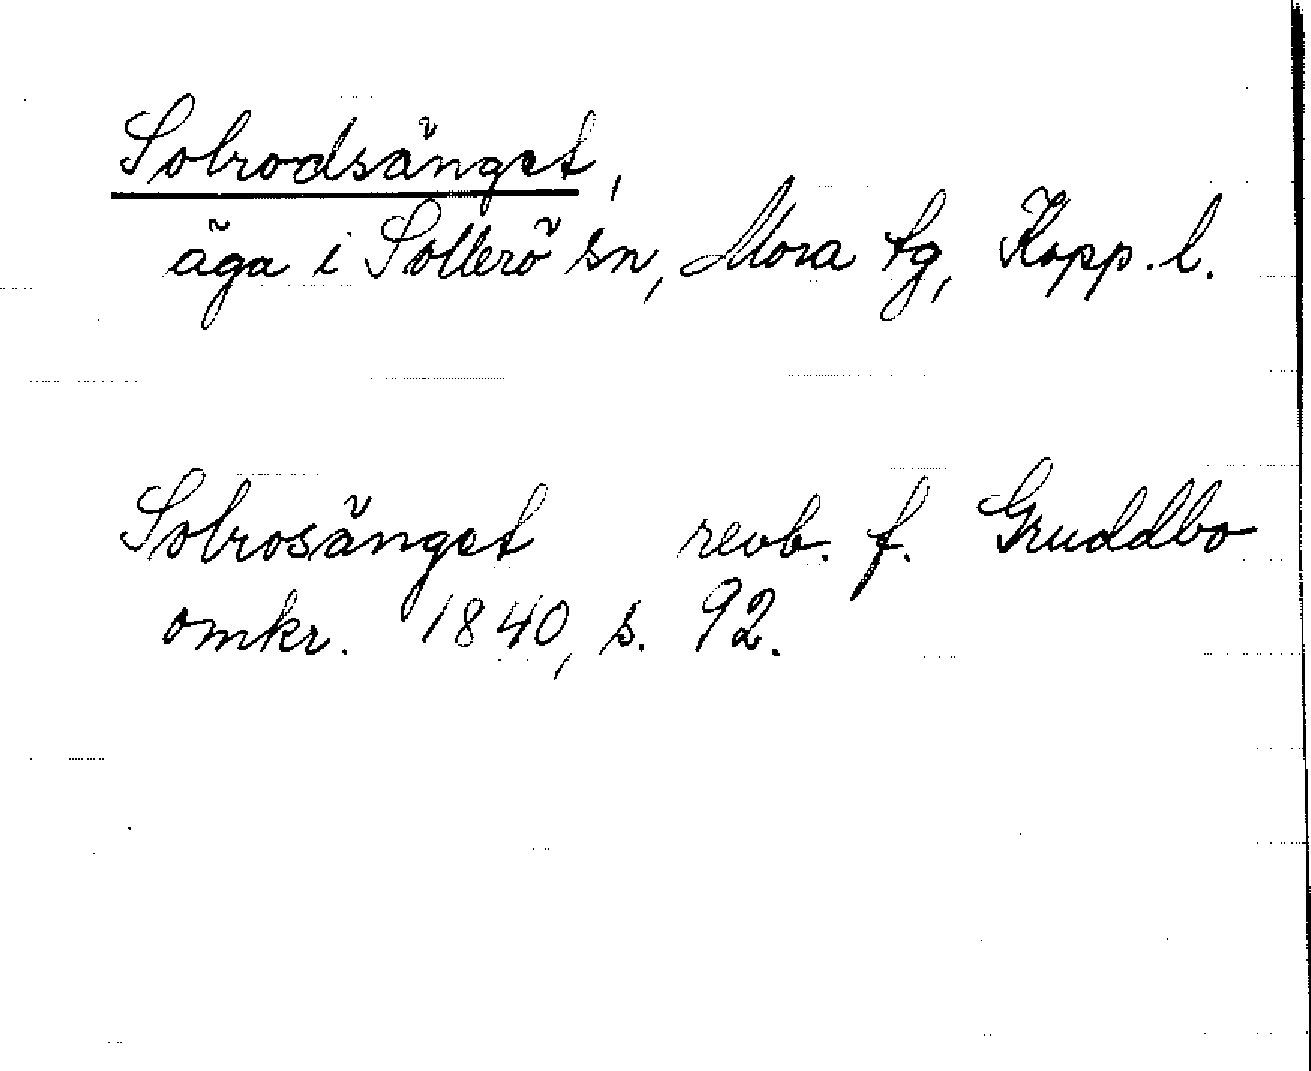 Solrodsänget,
äga i Sollerö sn, Mora tg, Kopp. l.
Solrosänget revb. f. Gruddbo
omkr. 1840, s. 92.